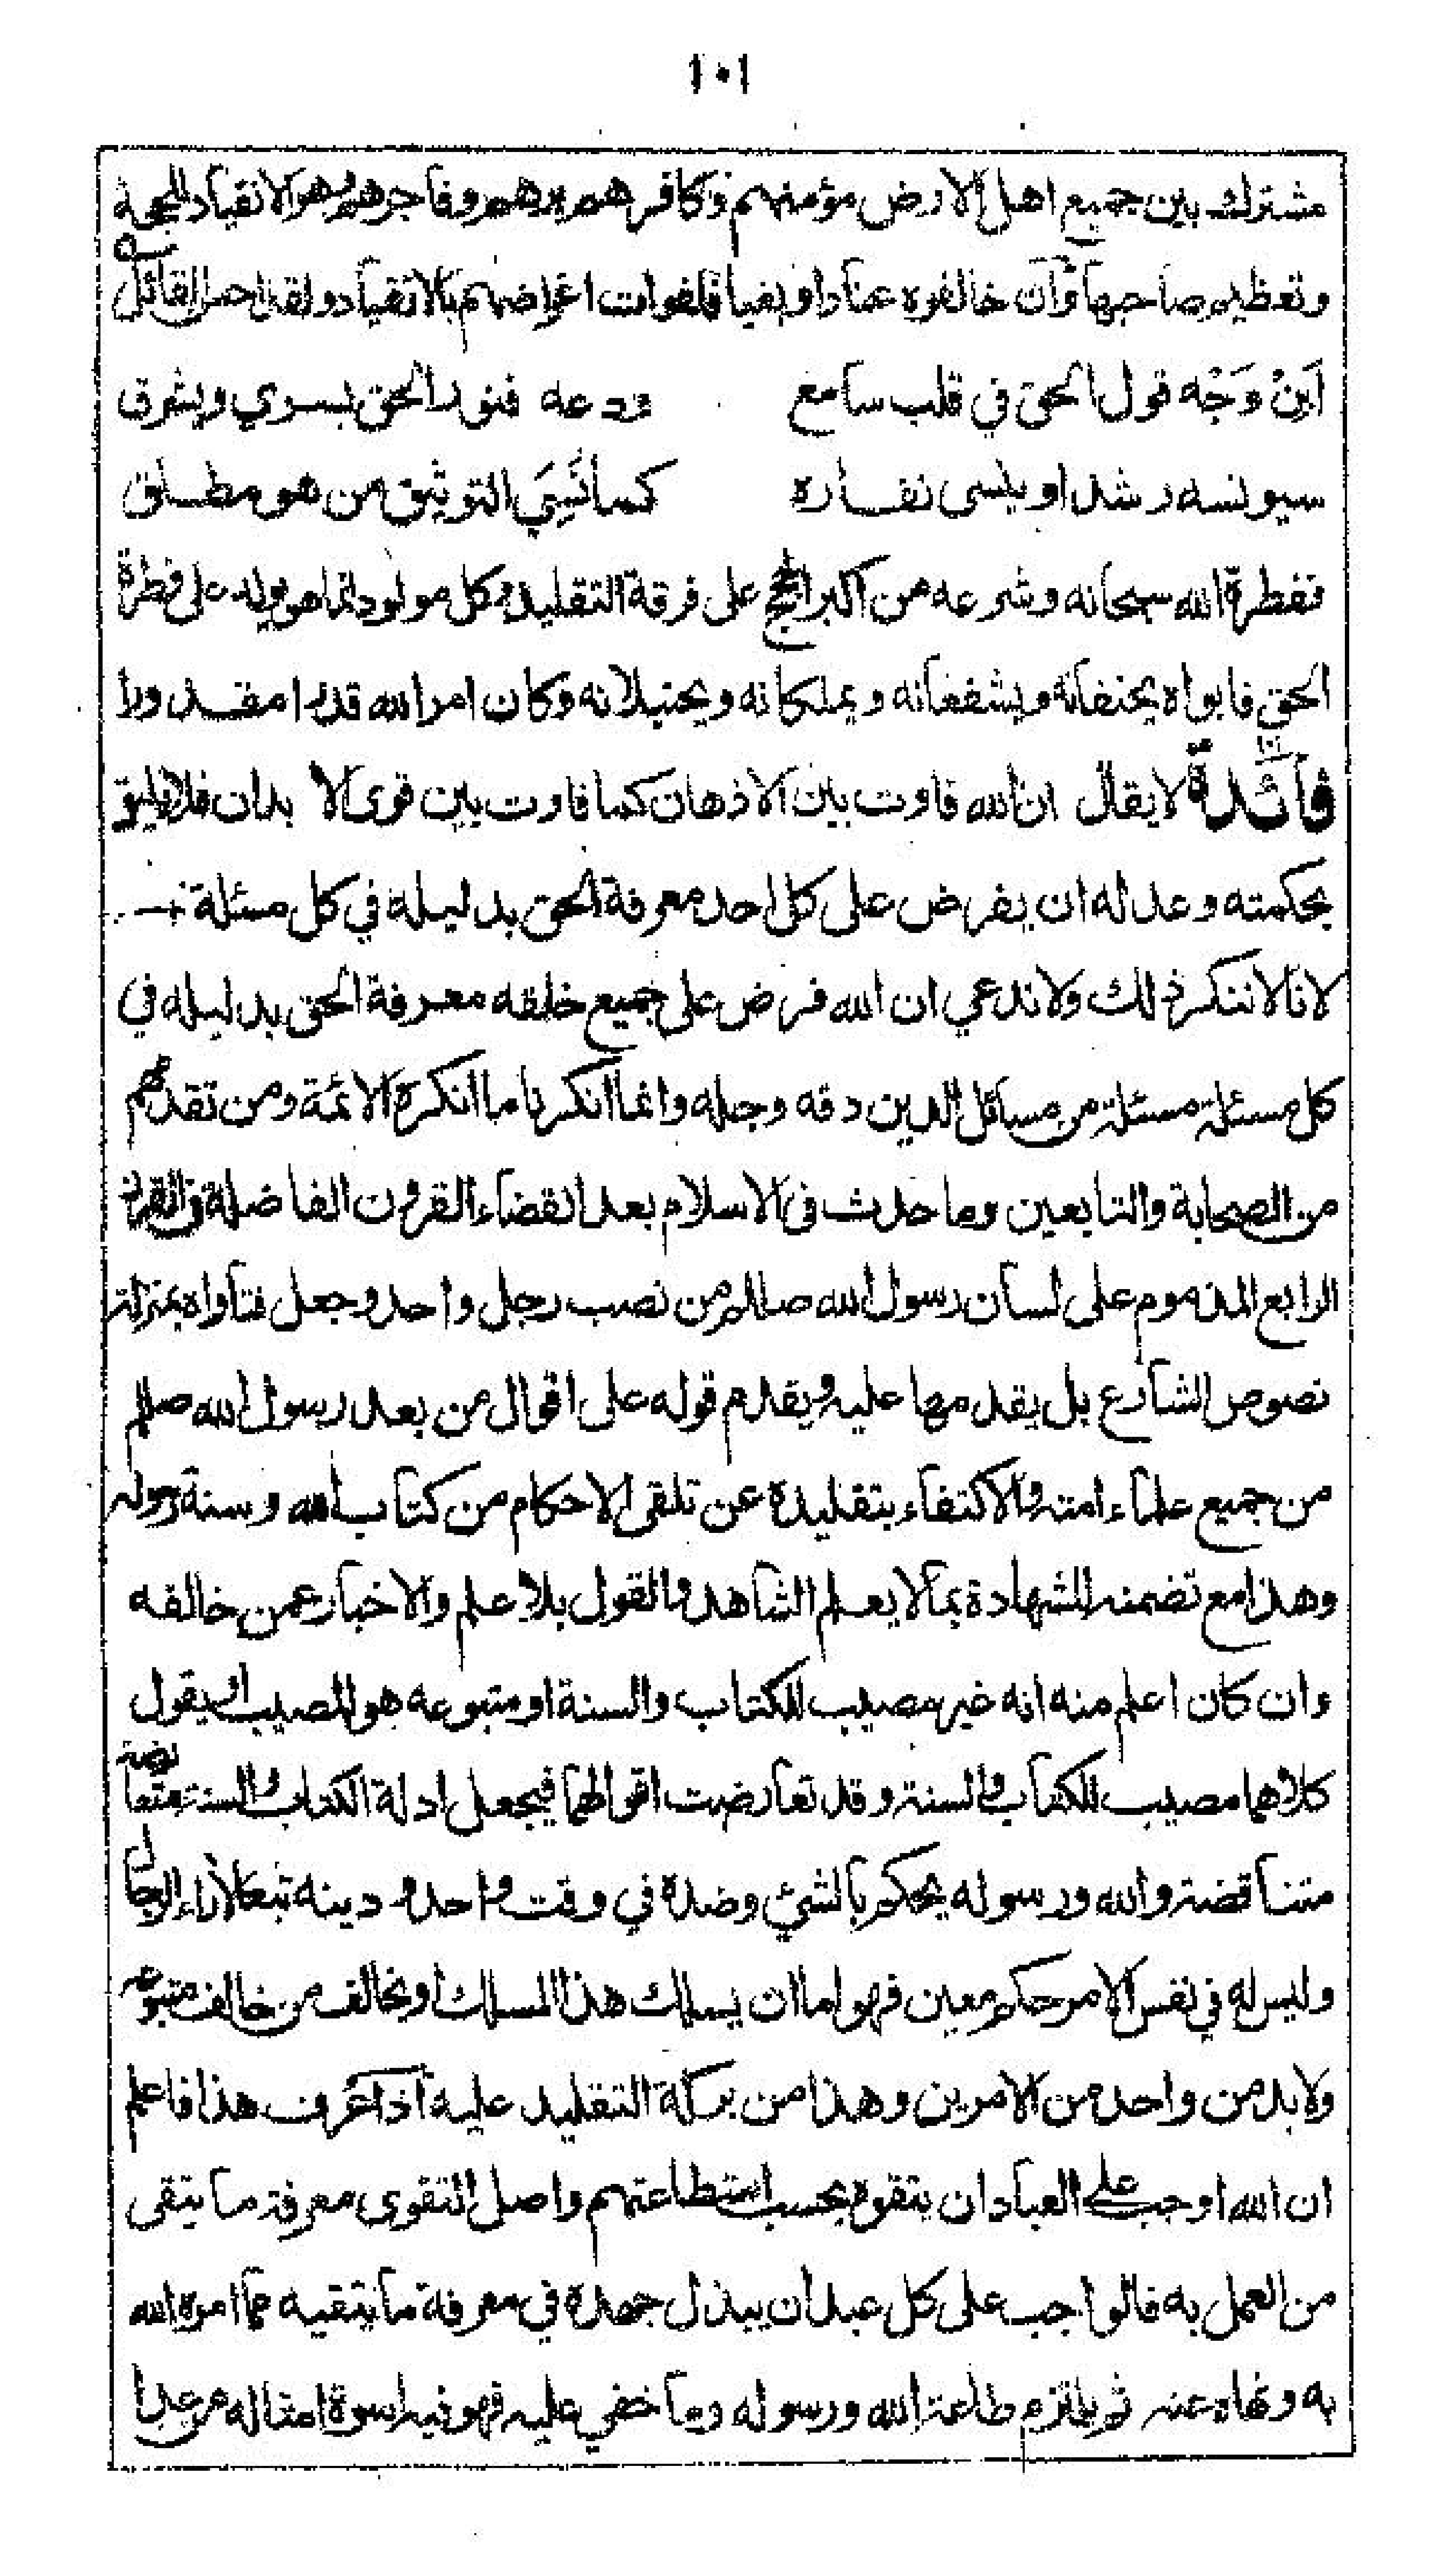 ١٠١
مشترك بين جميع اهل الارض مؤمنهم وكافرهم برهم وفاجرهم وهو الانقياد للحجة
وتعظيم صاحبها وان خالفوه عنادا وبغيا فلفوات اغراضهم بالانقياد ولقد احسن القائل
اَبِنْ وَجْه قول الحق في قلب سامع ودعه فنور الحق يسري ويشرق
سيونسه رشدا وينسى نفاره كما نَسِيَ التوثيق من هو مطلق
ففطرة الله سبحانه وشرعه من اكبر الحجج على فرقة التقليد وكل مولود انما هو يولد على فطرة
الحق فابواه يحنفانه ويشفعانه ويملكانه ويحنبلانه وكان امر الله قدرا مقدورا
فائدة لا يقال ان الله فاوت بين الاذهان كما فاوت بين قوى الا بدان فلا يليق
بحكمته وعدله ان يفرض على كل احد معرفة الحق بدليله في كل مسئلة
لانا لا ننكر ذلك ولا ندعي ان الله فرض على جميع خلقه معرفة الحق بدليله في
كل مسئلة مسئلة من مسائل الدين دقه وجله وانما انكرنا ما انكره الائمة ومن تقدمهم
من الصحابة والتابعين وما حدث في الاسلام بعد انقضاء القرون الفاضلة في القرن
الرابع المذموم على لسان رسول الله صللم من نصب رجل واحد وجعل فتاواه بمنزلة
نصوص الشارع بل يقدمها عليه ويقدم قوله على اقوال من بعد رسول الله صللم
من جميع علماء امته والاكتفاء بتقليده عن تلقى الاحكام من كتاب الله وسنة رسوله
وهذا مع تضمنه للشهادة بما لا يعلم الشاهد والقول بلا علم والاخبار عمن خالفه
وان كان اعلم منه انه غير مصيب للكتاب والسنة او متبوعه هو المصيب او يقول
كلاهما مصيب للكتاب والسنة وقد تعارضت اقوالهما فيجعل ادلة الكتاب والسنة متعارضة
متناقضة والله ورسوله يحكم بالشئ وضده في وقت واحد ودينه تبعا لآراء الرجال
وليس له في نفس الامر حكم معين فهو اما ان يسلك هذا المسلك او يخالف من خالف متبوعه
ولا بد من واحد من الامرين وهذا من بركة التقليد عليه اذا عرف هذا فاعلم
ان الله اوجب على العباد ان يتقوه بحسب استطاعتهم واصل التقوى معرفة ما يتقى
من العمل به فالواجب على كل عبد ان يبذل جهده في معرفة ما يتقيه مما امره الله
به ونهاه عنه ثم يلتزم طاعة الله ورسوله وما خفي عليه فهو فيه اسوة امثاله من عدا